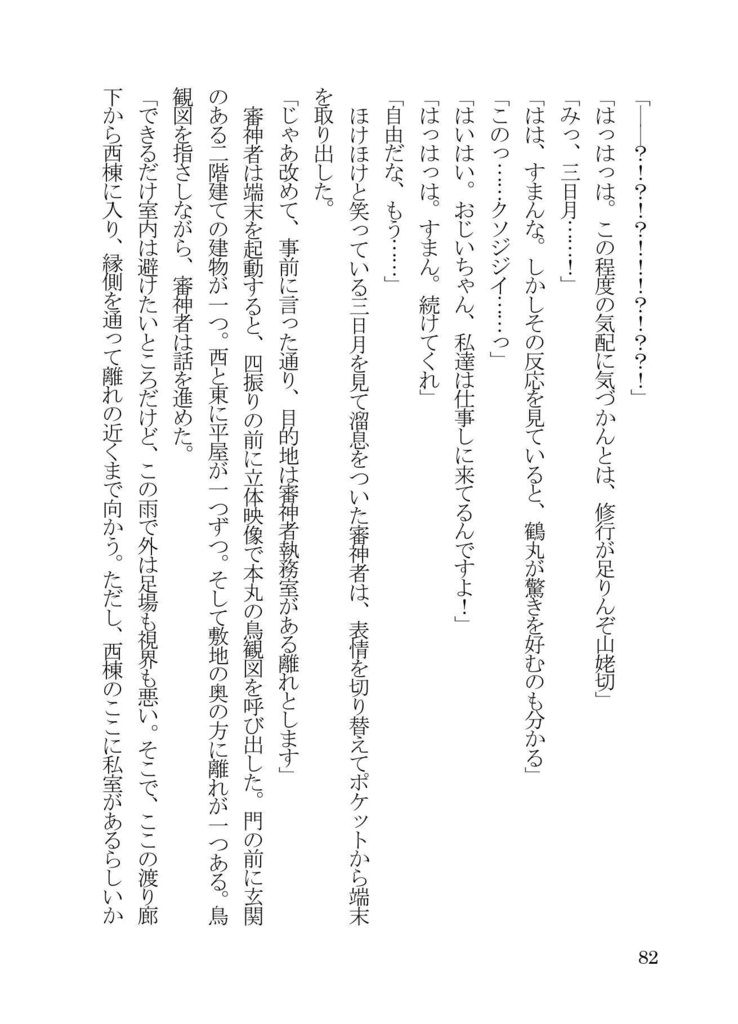 「――？！？！？！！！？！？？！」
「はっはっは。この程度の気配に気づかんとは、修行が足りんぞ山姥切」
「みっ、三日月……！」
「はは、すまんな。しかしその反応を見ていると、鶴丸が驚きを好むのも分かる」
「このっ……クソジジイ……っ」
「はいはい。おじいちゃん、私達は仕事しに来てるんですよ！」
「はっはっは。すまん。続けてくれ」
「自由だな、もう……」
　ほけほけと笑っている三日月を見て溜息をついた審神者は、表情を切り替えてポケットから端末
を取り出した。
「じゃあ改めて、事前に言った通り、目的地は審神者執務室がある離れとします」
　審神者は端末を起動すると、四振りの前に立体映像で本丸の鳥観図を呼び出した。門の前に玄関
のある二階建ての建物が一つ。西と東に平屋が一つずつ。そして敷地の奥の方に離れが一つある。鳥
観図を指さしながら、審神者は話を進めた。
「できるだけ室内は避けたいところだけど、この雨で外は足場も視界も悪い。そこで、ここの渡り廊
下から西棟に入り、縁側を通って離れの近くまで向かう。ただし、西棟のここに私室があるらしいか
82